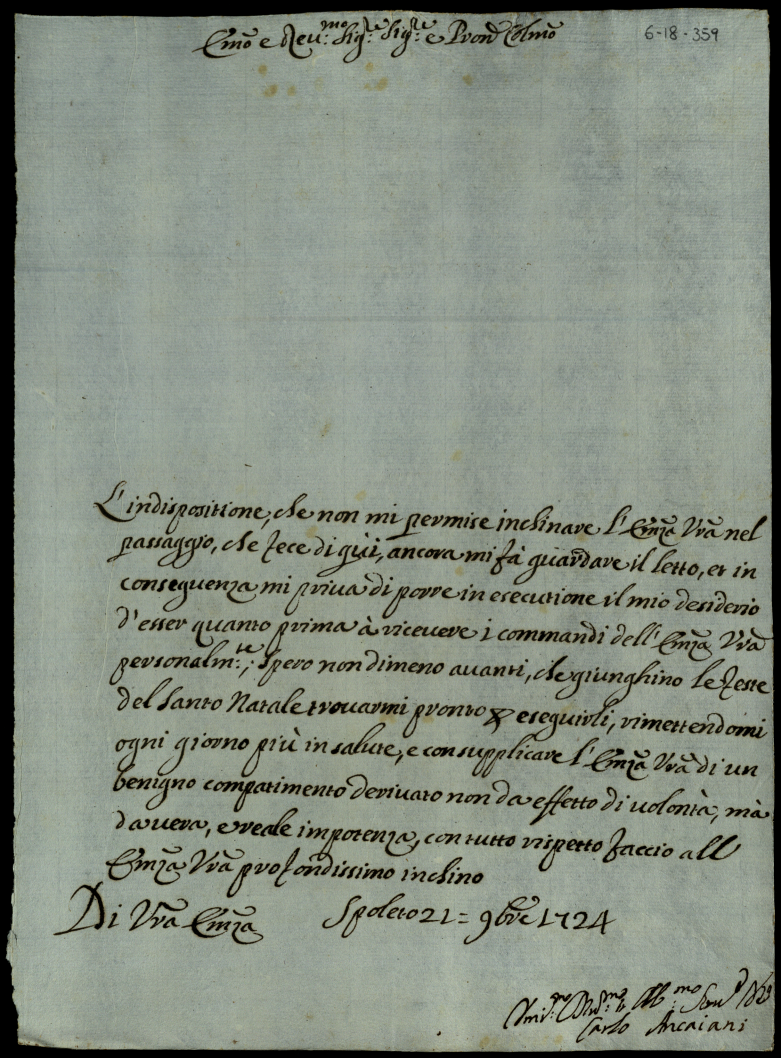 Emõ e Reu:mo Sig:re Sig:re e Pron Colmõ
6-18-359
L'indispositione, che non mi permise inchinare l'Emza Vrã nel
passaggio, che fece di quì, ancora mi fà guardare il letto, et in
conseguenza mi priua di porre in esecutione il mio desiderio
d'esser quanto prima à riceuere i commandi dell'Emza Vrã
personalm:te; spero non dimeno auanti, che giunghino le feste
del Santo Natale trouarmi pronto p eseguirli, rimettendomi
ogni giorno più in salute, e con supplicare l'Emza Vrã di un
benigno compatimento deriuato non da effetto di volontà, mà
da vera, e reale impotenza, con tutto rispetto faccio all
Emza Vrã profondissimo inchino
Di Vrã Emza Spoleto 21= 9bre 1724
Carlo Ancaiani